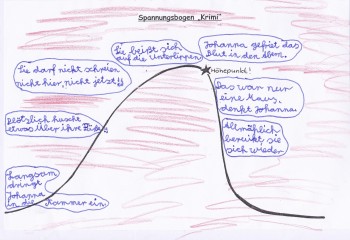 Spannungsbogen „Krimi"
Sie beißt sich
auf die Unterlippen.
Johanna gefriert das
Blut in den Adern.
Höhepunkt!
Sie darf nicht schreien
nicht hier, nicht jetzt!
Das war nur
eine Maus,
denkt Johanna.
Plötzlich huscht
etwas über ihre Füße.
Allmählich
beruhigt sie
sich wieder
Langsam
dringt
Johanna
in die Kammer ein